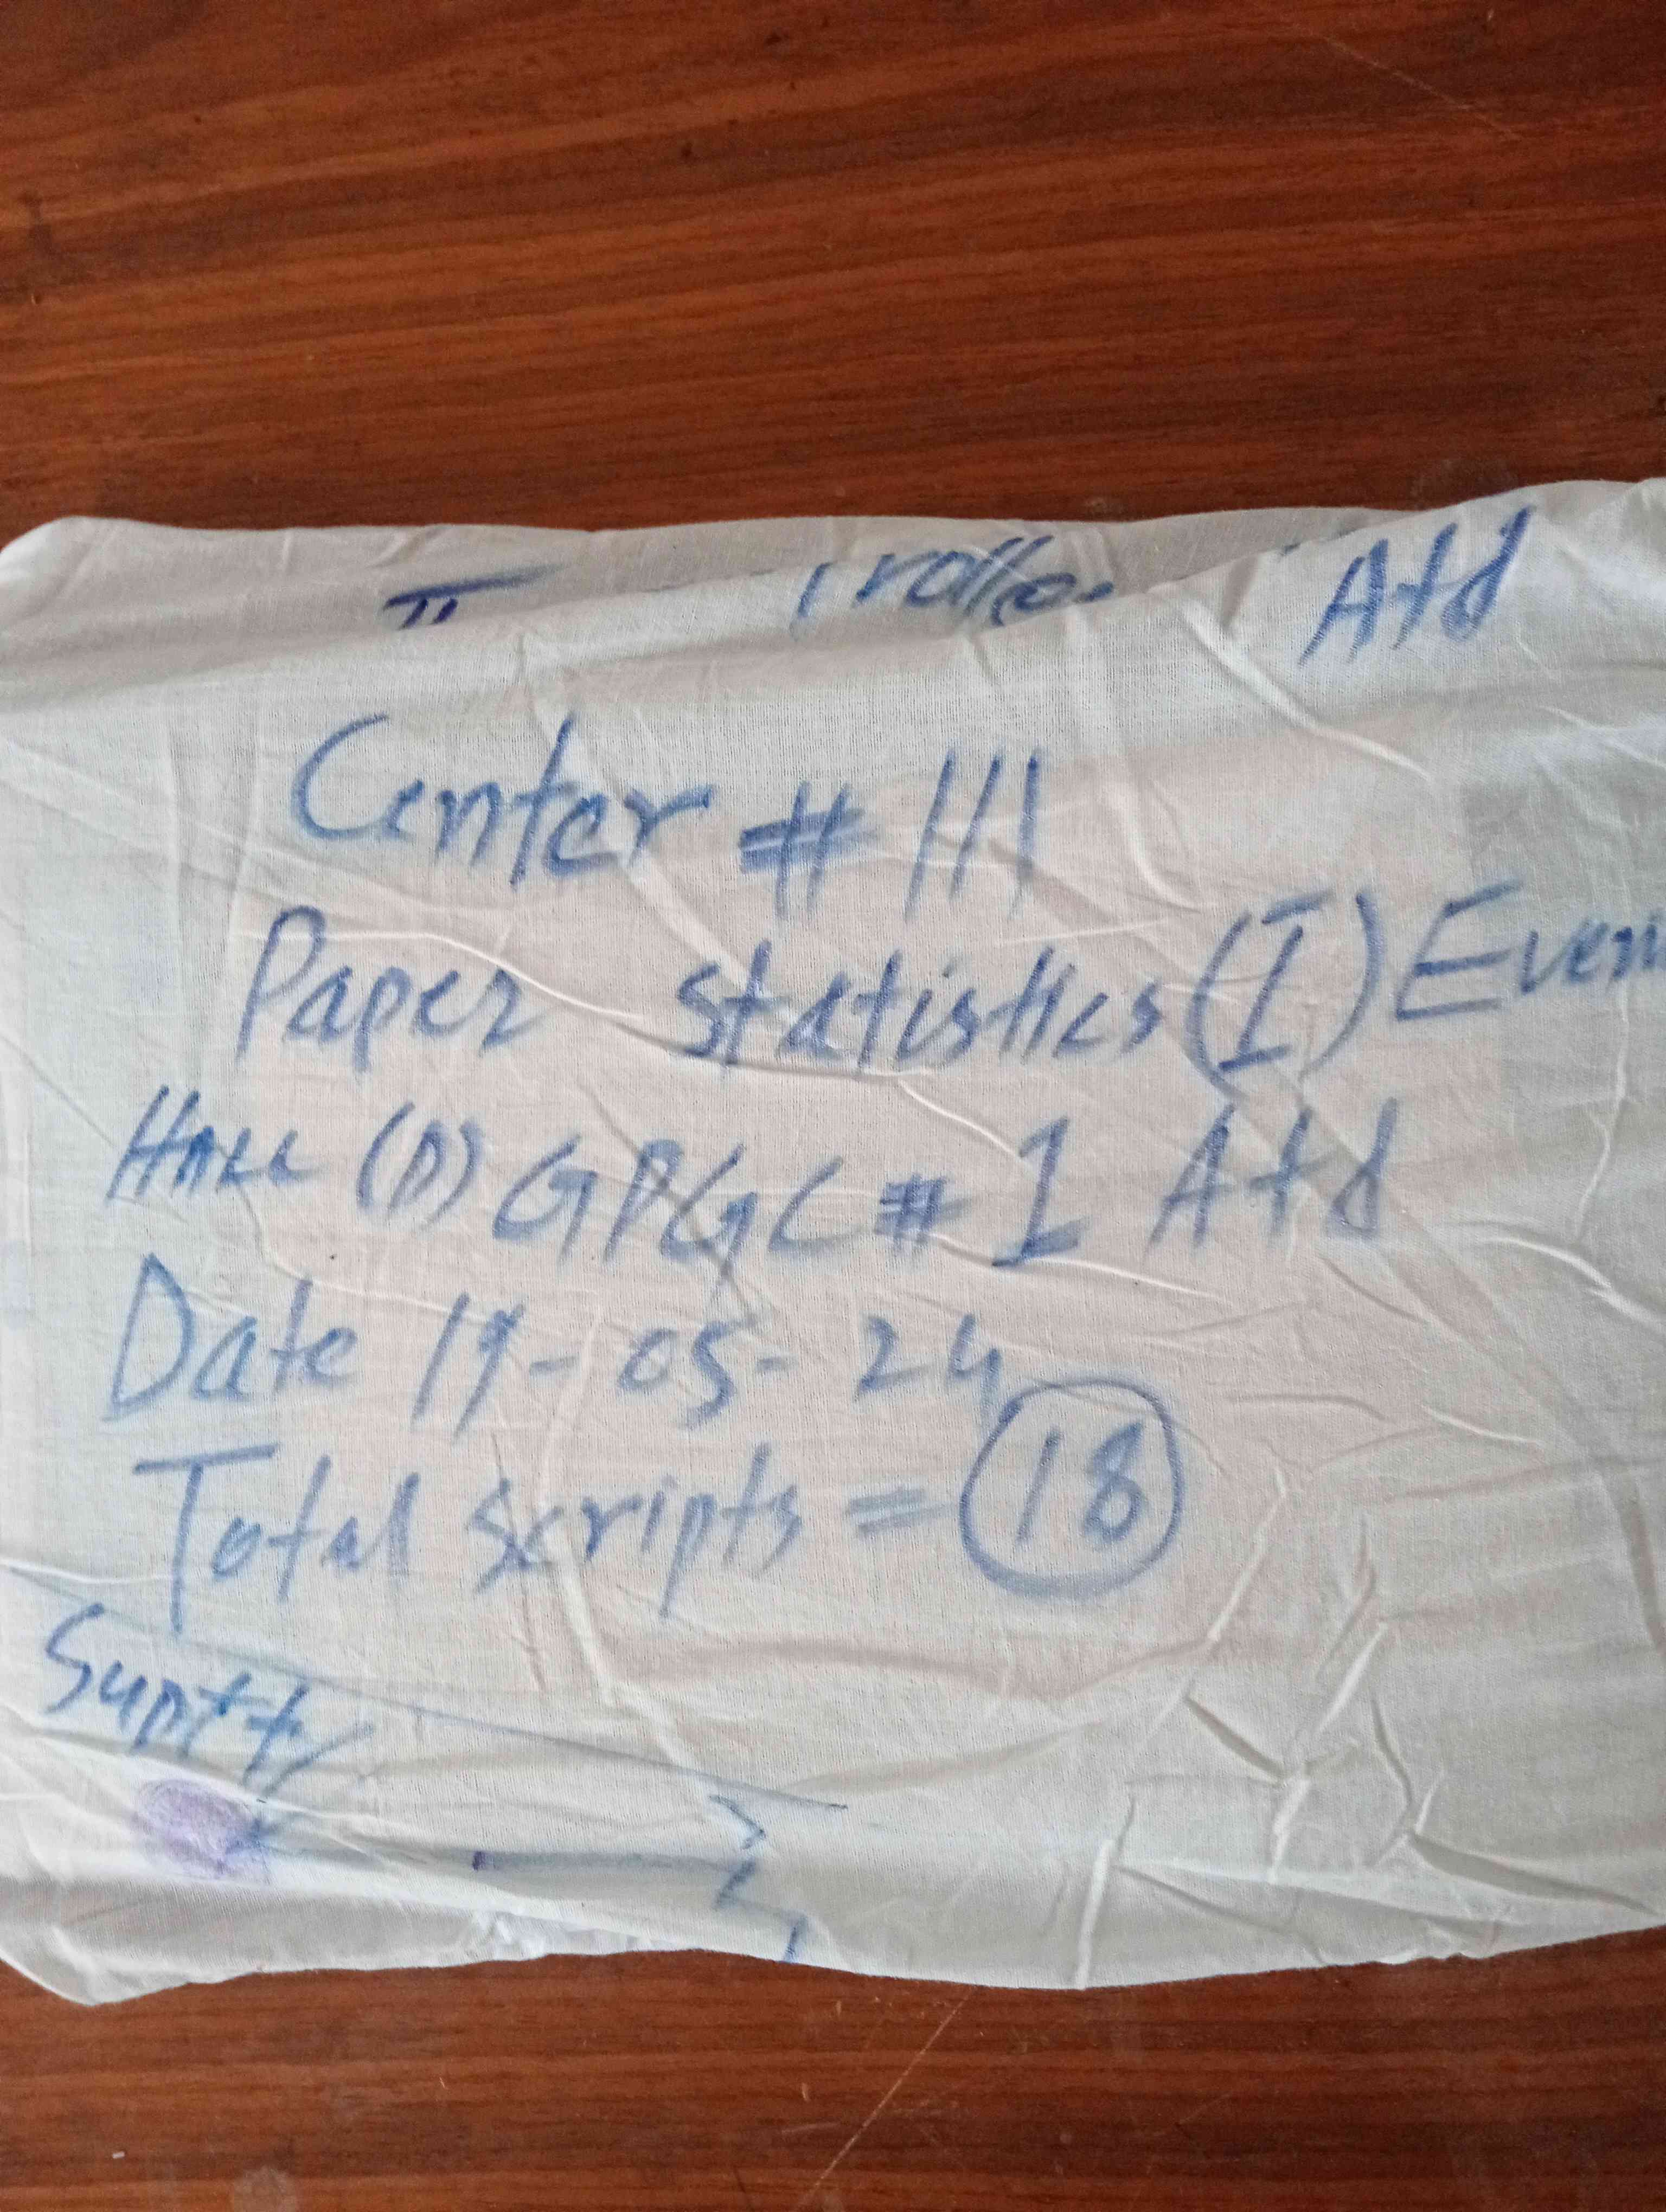 Atd
Center # 111
Paper Statistics (I) Even
Hall (D) GPGC # 1 Atd
Date 19-05-24
Total scripts = 18
Suptt